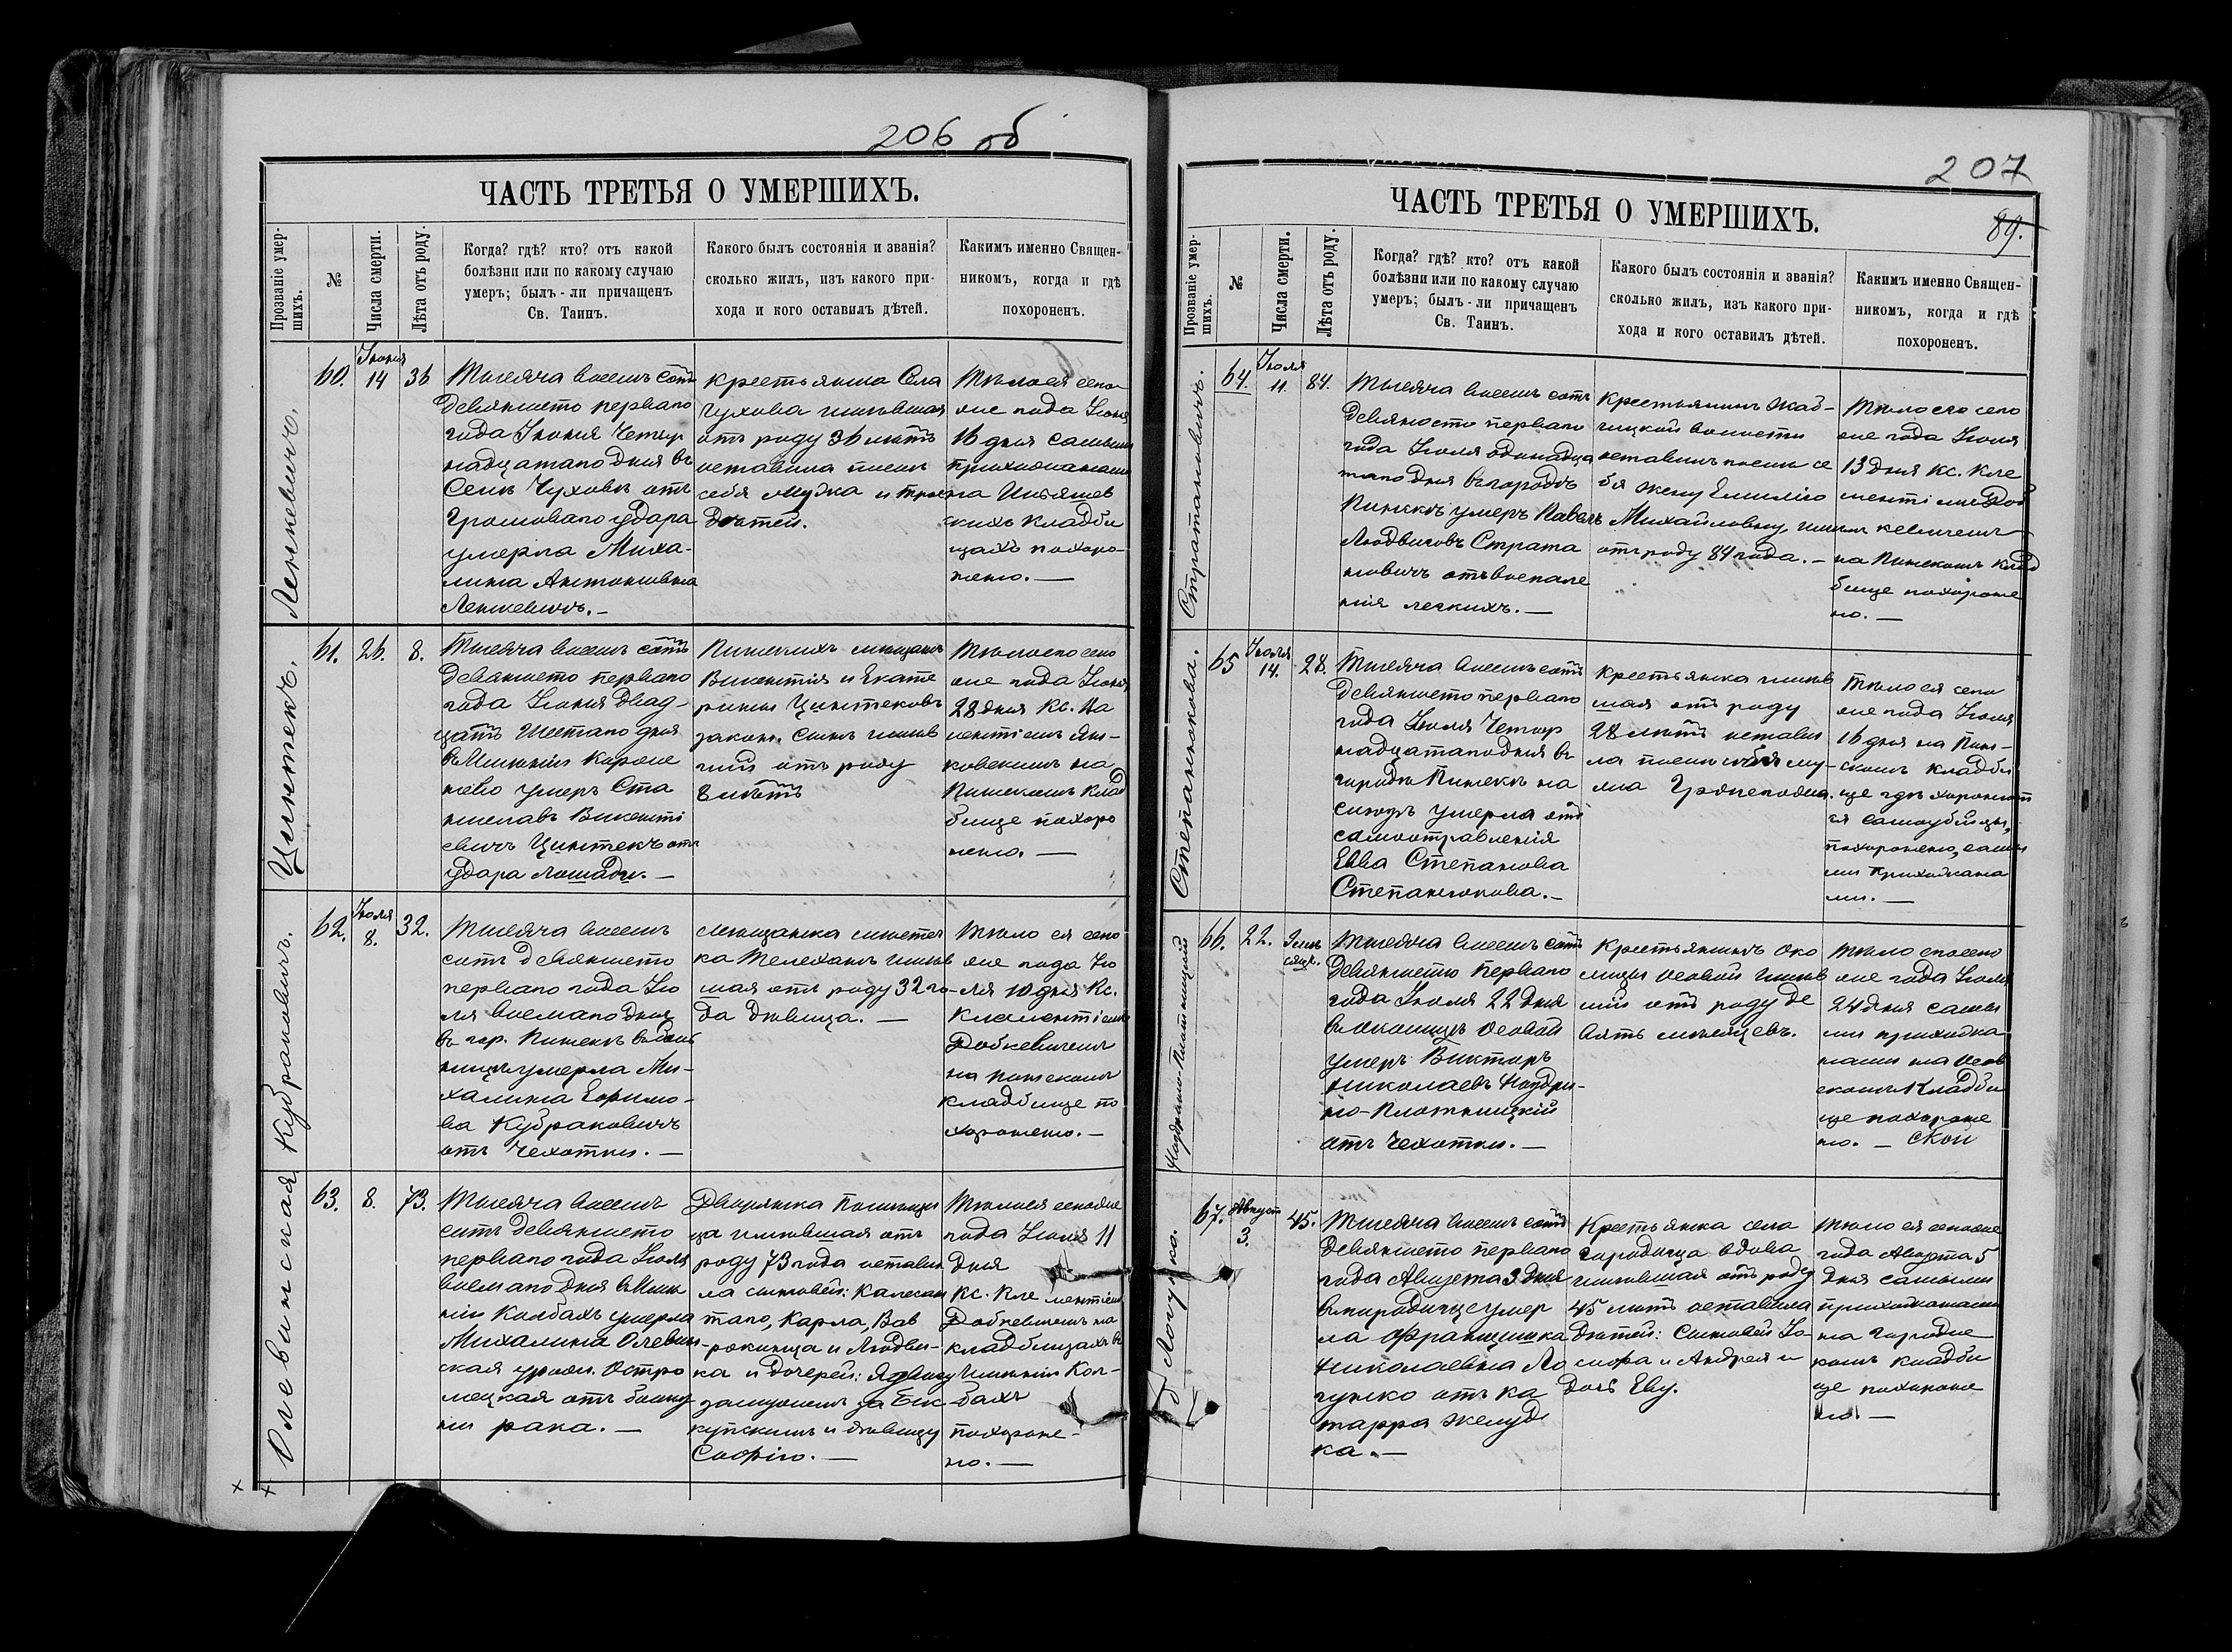 206 об
ЧАСТЬ ТРЕТЬЯ О УМЕРШИХЪ.
Прозваніе умер-
шихъ.
№
Числа смерти.
Лѣта отъ роду.
Когда? гдѣ? кто? отъ какой
болѣзни или по какому случаю
умеръ; былъ-ли причащенъ
Св. Таинъ.
Какого былъ состоянія и званія?
сколько жилъ, изъ какого при-
хода и кого оставилъ дѣтей.
Какимъ именно Священ-
никомъ, когда и гдѣ
похороненъ.
Ленкевичъ.
60.
Іюня
14
36
Тысяча восемь сотъ
девяносто перваго
года Іюня четыр
надцатаго дня въ
селѣ Чуховѣ отъ
громоваго удара
умерла Миха-
лина Антоновна
Ленкевичъ. —
крестьянка села
Чухова жившая
отъ роду 36 лѣтъ
оставила послѣ
себя мужа и трое
дѣтей.
Тѣло ея сего
же года Іюня
16 дня самыми
прихожанами
на
скихъ кладби
щахъ похоро-
нено. —
Цинтекъ.
61.
26.
8.
Тысяча восемь сотъ
девяносто перваго
года Іюня двад-
цать шестаго дня
въ имѣніи Кароли
нево умеръ Ста
ниславъ Викенті
евичъ Цинтекъ отъ
удара лошади. —
Пинскихъ мѣщанъ
Викентія и Екате
рины Цинтековъ
закон. сынъ жив
шій отъ роду
8 лѣтъ
Тѣло его сего
же года Іюня
28 дня Кс. Кле
ментіемъ
на
Пинскомъ клад
бище похоро
нено. —
Кубраковичъ.
62.
Іюля
8.
32.
Тысяча восемь
сотъ девяносто
перваго года Ію
ля восмаго дня
въ гор. Пинскѣ въ боль
ницѣ умерла Ми-
халина Ефимо-
ва Кубраковичъ
отъ чахотки. —
мѣщанка мѣстеч
ка Телеханъ жив
шая отъ роду 32 го-
да дѣвица. —
Тѣло ея сего
же года Ію
ля 10 дня Кс.
Клементіемъ
Добкевичемъ
на Пинскомъ
кладбище по
хоронено. —
Олевинская
63.
8.
73.
Тысяча восемь
сотъ девяносто
перваго года Іюля
восмаго дня въ имѣ
ніи Колбахъ умерла
Михалина Олевин-
ская урож. Остро
мецкая отъ болѣз
ни рака. —
Дворянка помѣщи
ца жившая отъ
роду 73 года остави
ла сыновей: Калесан
таго, Карла, Вав
ржинца и Людви-
ка и дочерей: Ядвигу
замужемъ за Бѣк
купскимъ и дѣвицу
Софію. —
Тѣло ея сего же
года Іюля 11
дня
Кс. Клементіемъ
Добкевичемъ на
кладбищахъ въ
имѣніи Кол-
бахъ
похороне-
но. —
207
89.
ЧАСТЬ ТРЕТЬЯ О УМЕРШИХЪ.
Прозваніе умер-
шихъ.
№
Числа смерти.
Лѣта отъ роду.
Когда? гдѣ? кто? отъ какой
болѣзни или по какому случаю
умеръ; былъ-ли причащенъ
Св. Таинъ.
Какого былъ состоянія и званія?
сколько жилъ, изъ какого при-
хода и кого оставилъ дѣтей.
Какимъ именно Священ-
никомъ, когда и гдѣ
похороненъ.
Стратановичъ.
64.
Іюля
11.
84.
Тысяча восемь сотъ
девяносто перваго
года Іюля одинадца
таго дня въ городѣ
Пинскѣ умеръ Павелъ
Людвиговъ Страта
новичъ отъ воспале
нія легкихъ. —
Крестьянинъ Жаб-
чицкой волости
оставилъ послѣ се
бя жену Емилію
Михайловну, жилъ
отъ роду 84 года. —
Тѣло его сего
же года Іюля
13 дня Кс. Кле
ментіемъ Доб
кевичемъ
на Пинскомъ клад
бище похороне
но. —
Степанюкова.
65
Іюля
14.
28.
Тысяча восемь сотъ
девяносто перваго
года Іюля четыр
надцатаго дня въ
городѣ Пинскѣ на
умерла отъ
самоотравленія
Евва Степанова
Степанюкова. —
Крестьянка жив
шая отъ роду
28 лѣтъ остави
ла послѣ себя му-
жа
Тѣло ея сего
же года Іюля
16 дня на Пин-
скомъ кладби
ще гдѣ хоронят
ся самоубійцы,
похоронено, самы
ми прихожана
ми. —
Наудринъ-Плотницкій
66.
22.
9 мѣ
сяц.
Тысяча восемь сотъ
девяносто перваго
года Іюля 22 дня
въ околицѣ Осовой
умеръ Викторъ
Николаевъ
-Плотницкій
отъ чахотки. —
Крестьянинъ око
лицы Осовой жив
шій отъ роду де
вять мѣсяцевъ.
Тѣло его сего
же года Іюля
24 дня самы
ми прихожа
нами на Осов
скомъ кладби
ще похороне
но. — ской
Логучко.
67.
Август
3.
45.
Тысяча восемь сотъ
девяносто перваго
года Августа 3 дня
въ Городище умер
ла Францишка
Николаевна Ло
гучко отъ ка
тарра желуд
ка. —
Крестьянка села
Городища вдова
жившая отъ роду
45 лѣтъ оставила
дѣтей: сыновей Іо-
сифа и Андрея и
дочь Еву.
Тѣло ея сего же
года Августа 5
дня самыми
прихожанами
на Городис
комъ кладби
ще похороне
но. —